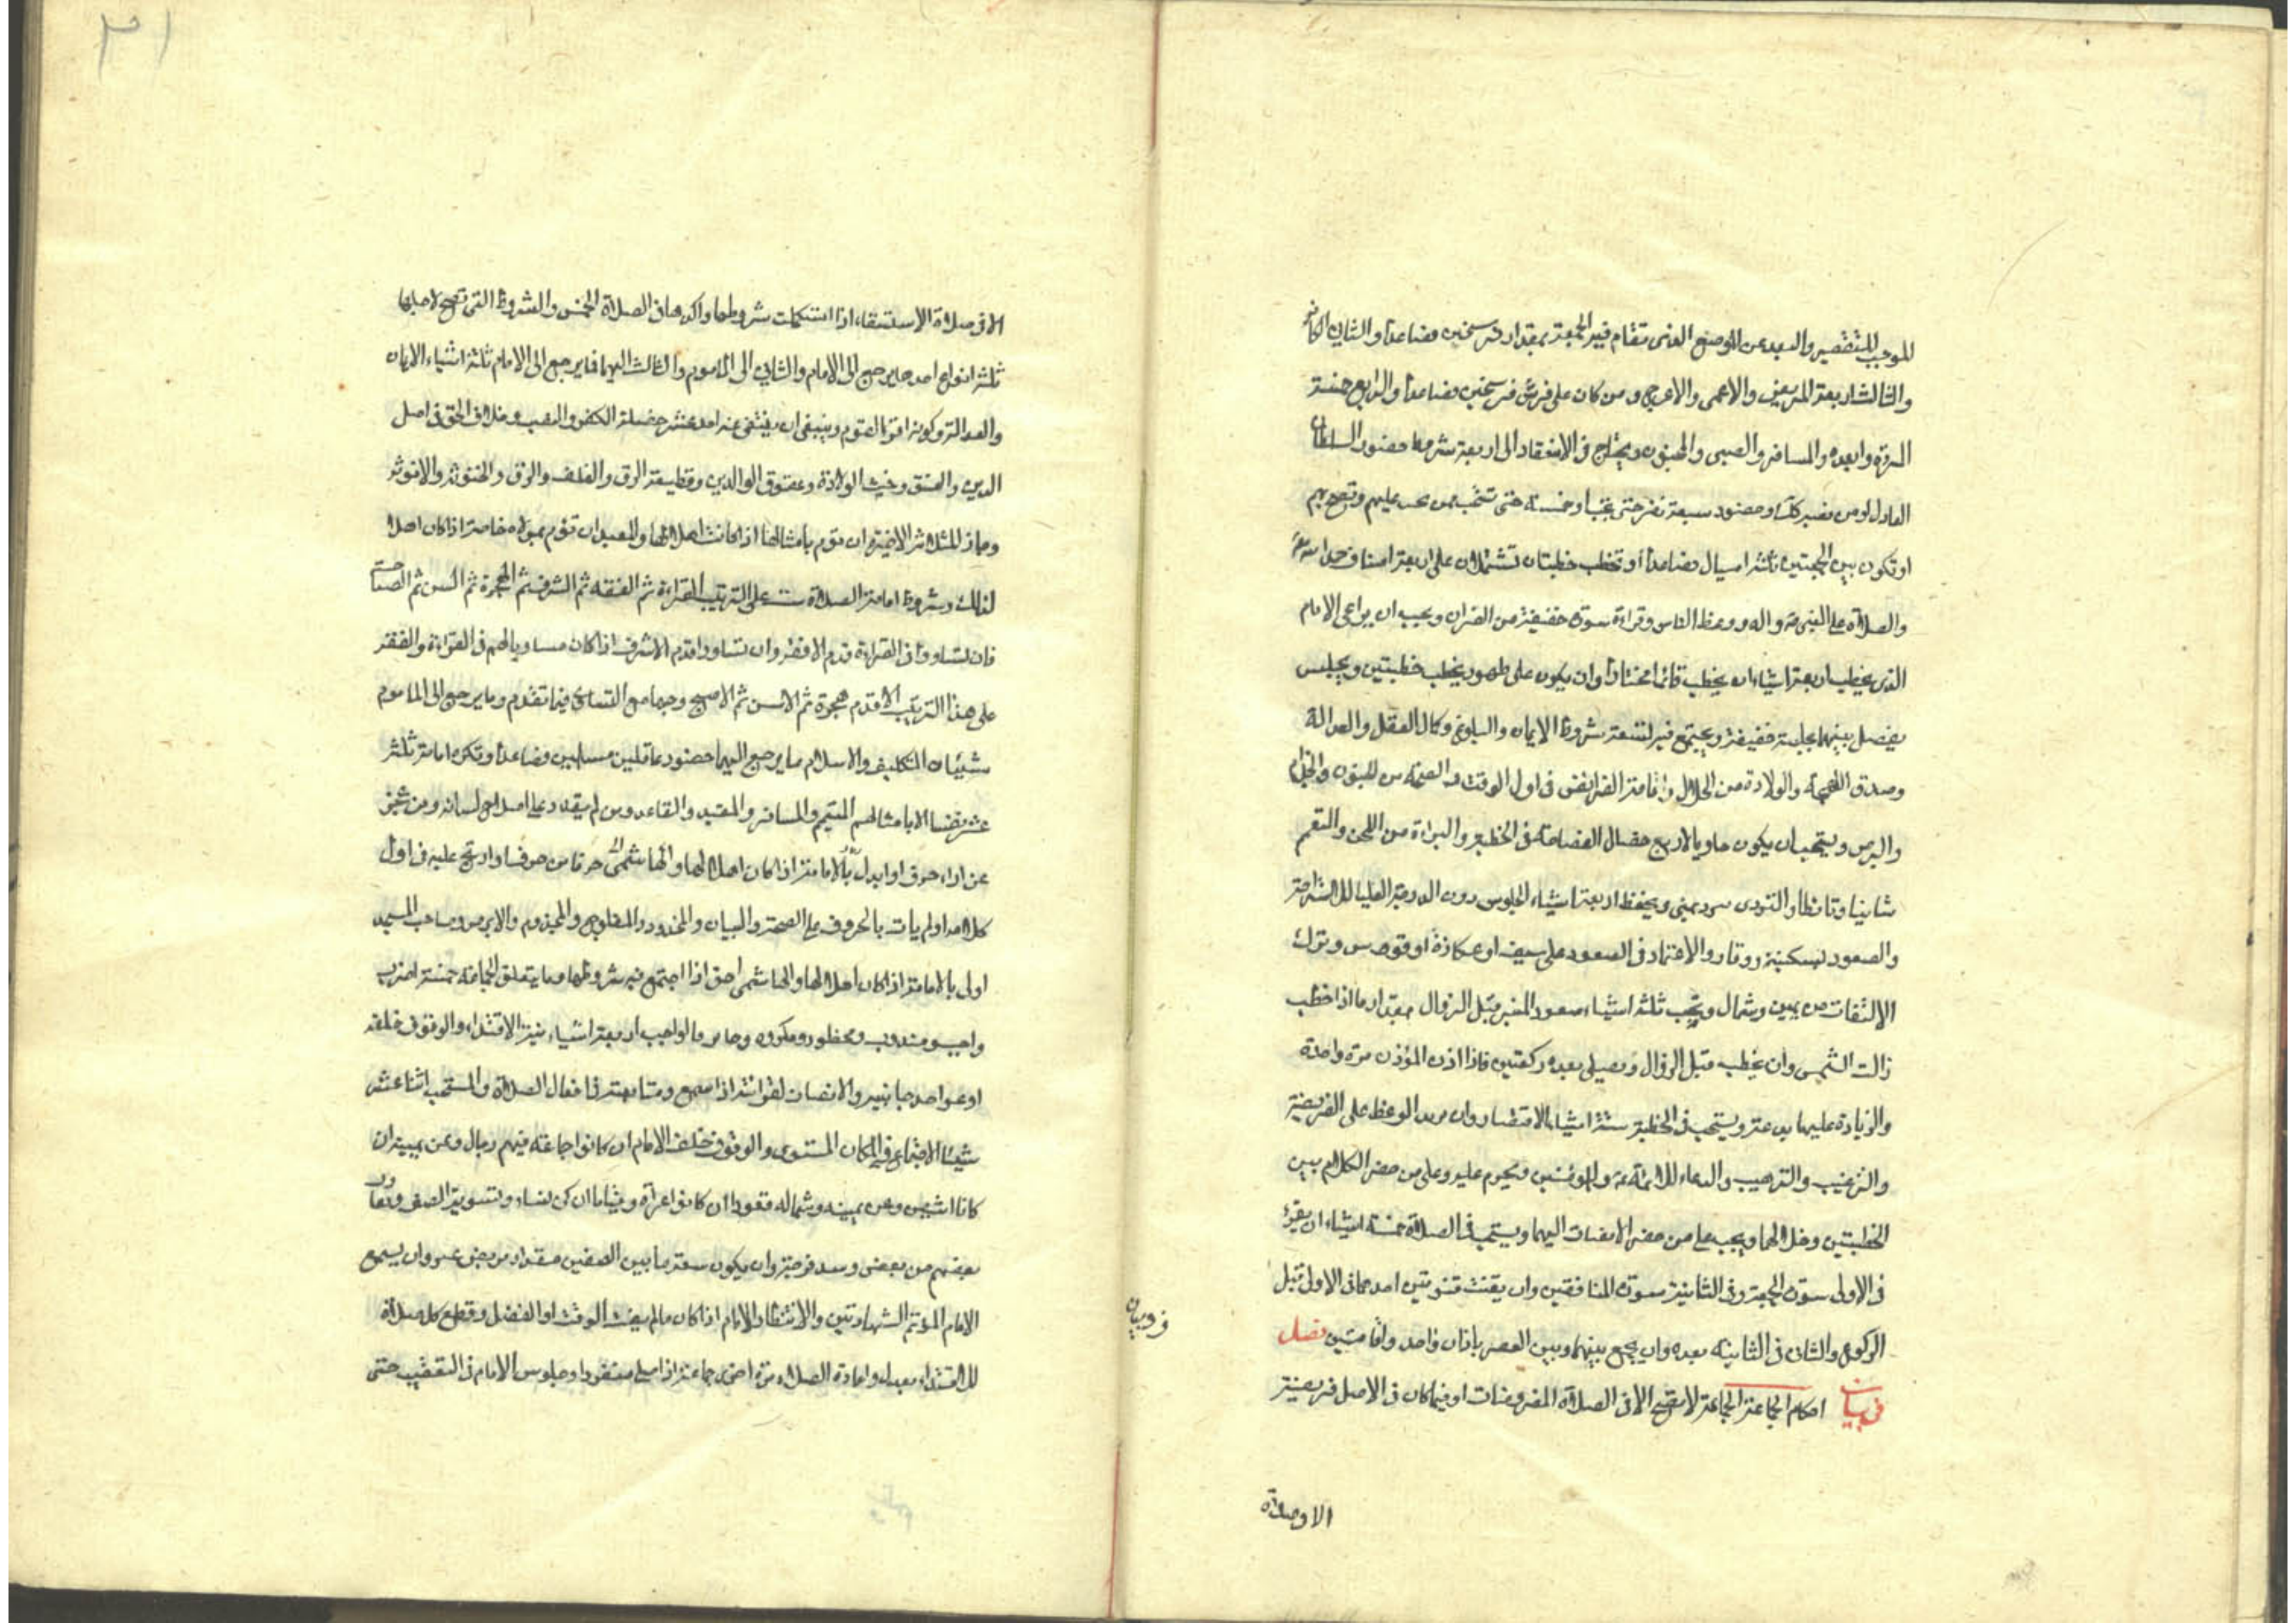 الموجب للتقصير والبعد عن الموضع الذى تقام فيه الجمعة بمقدار فرسخين فصاعدا والثانى الكافر
والثالث اربعة المريض والاعمى والاعرج ومن كان على فرسخين فصاعدا والرابع خمسة
المرءة والعبد والمسافر والصبى والمجنون ويحتاج فى الانعقاد الى اربعة شروط حضور السلطان
العادل او من نصبه لذلك وحضور سبعة نفر حتى يجب او خمسة حتى تستحب ممن يجب عليهم وتصح بهم
او تكون بين الجمعتين ثلثة اميال فصاعدا او تخطب خطبتان تشتملان على اربعة اصناف حمد الله تع
والصلاة على النبى ص واله ووعظ الناس وقراءة سورة خفيفة من القران ويجب ان يراعى الامام
الذى يخطب اربعة اشياء ان يخطب قائما مختارا وان يكون على طهور يخطب خطبتين ويجلس
يفصل بينهما بجلسة خفيفة ويجتمع فيه تسعة شروط الايمان والبلوغ وكمال العقل والعدالة
وصدق اللهجة والولادة من الحلال واقامة الفرايض فى اول الوقت والصحة من الجنون والجذام
والبرص ويستحب ان يكون حاويا لاربع خصال الفصاحة فى الخطبة والبراءة من اللحن والتعمم
شاتيا وقائظا والتردى ببرد يمنى ويحفظ اربعة اشياء الجلوس دون الدرجة العليا للاستراحة
والصعود بسكينة ووقار والاعتماد فى الصعود على سيف او عكازة او قوس وترك
الالتفات من يمين وشمال ويجب ثلثة اشياء صعود المنبر قبل الزوال مقدار ما اذا خطب
زالت الشمس وان يخطب قبل الزوال ويصلى بعده ركعتين فاذا اذن المؤذن مرة واحدة
والزيادة عليها بدعة ويستحب فى الخطبة ستة اشياء الاقتصار وان يريد الوعظ على الفريضة
والترغيب والترهيب والدعاء للائمة ع وللمؤمنين ويحرم عليه وعلى من حضر الكلام بين
الخطبتين وخلالهما ويجب على من حضر الانصات اليهما ويستحب فى الصلاة خمسة اشياء ان يقرء
فى الاولى سورة الجمعة وفى الثانية سورة المنافقين وان يقنت قنوتين احدهما فى الاولى قبل
الركوع والثانى فى الثانية بعده وان يجمع بينهما وبين العصر باذان واحد واقامتين فصل
فى بيان احكام الجماعة الجماعة لا تصح الا فى الصلاة المفروضات او فيما كان فى الاصل فريضة
الا وصلاة
الا فى صلاة الاستسقاء اذا استكملت شروطها واكدها فى الصلاة الخمس والشروط التى تصح لاجلها
ثلثة انواع احدها يرجع الى الامام والثانى الى الماموم والثالث اليهما فما يرجع الى الامام ثلثة اشياء الايمان
والعدالة وكونه اقرا القوم وينبغى ان ينتفى عنه احد عشر خصلة الكفر والنصب وخلاف الحق فى اصل
الدين والفسق وخبث الولادة وعقوق الوالدين وقطيعة الرحم والغلف والرق والخنوثة والانوثة
وجاز للثلاثة الاخيرة ان تؤم بامثالها اذا كانت اهلا لها وللعبد ان تؤم بمولاه خاصة اذا كان اهلا
لذلك وشروط امامة الصلاة ست على الترتيب القراءة ثم الفقه ثم الشرف ثم الهجرة ثم السن ثم الصباحة
فان تساووا فى القراءة قدم الافقه وان تساووا قدم الاشرف اذا كان مساويا لهم فى القراءة والفقه
على هذا الترتيب الاقدم هجرة ثم الاسن ثم الاصبح وجها مع التساوى فيما تقدم وما يرجع الى الماموم
شيئان التكليف والاسلام وما يرجع اليهما حضور عاقلين مسلمين فصاعدا وتكره امامة ثلثة
عشر نفسا الا بامثالهم المتيمم والمسافر والمقيد والقاعد ومن لم يقدر على اصلاح لسانه ومن عجز
عن اداء حرف او ابدل حرفا من حرف او ارتج عليه فى اول
كلامه او لم يات بالحروف على الصحة والبيان والمحدود والمفلوج والمجذوم والابرص وصاحب المسجد
اولى بالامامة اذا كان اهلا لها والهاشمى احق اذا اجتمع فيه شروطها وما يتعلق بالجماعة خمسة اضرب
واجب ومندوب ومحظور ومكروه وجايز فالواجب اربعة اشياء نية الاقتداء والوقوف خلفه
او عن احد جانبيه والانصات لقراءته اذا سمع ومتابعته فى افعال الصلاة والمستحب اثنا عشر
شيئا الاجتماع فى المكان المستوى والوقوف خلف الامام ان كانوا جماعة فيهم رجال وعن يمينه ان
كانا اثنين وعن يمينه وشماله قعودا ان كانوا عراة وقياما ان كن نساء وتسوية الصف وتقارب
بعضهم من بعض وسد فرجة وان يكون سعة ما بين الصفين مقدار مربض عنز وان يسمع
الامام المؤتم الشهادتين والانتظار للامام اذا كان ما لم يفت الوقت او الفضل وقطع كل صلاة
للاقتداء بعدل واعادة الصلاة مرة اخرى جماعة اذا صلى منفردا وجلوس الامام فى التعقيب حتى